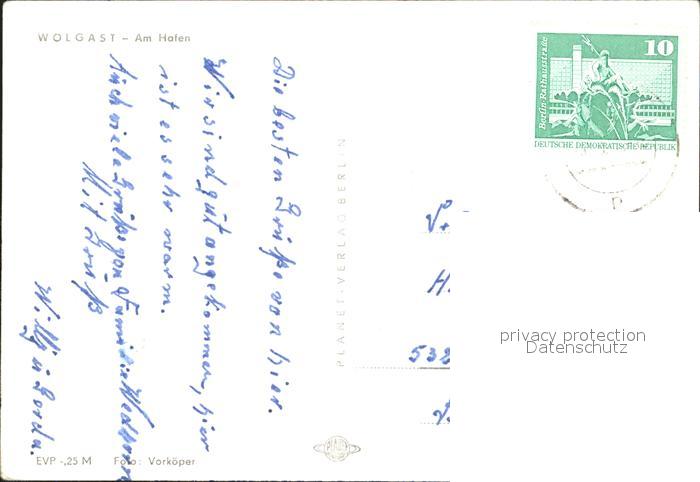 WOLGAST – Am Hafen
Die besten Grüße von hier.
Wir sind gut angekommen, hier
ist es sehr warm.
Auch viele Grüße von Familie
Mit Gruß
Willy u Gerda.
EVP -,25 M Foto: Vorköper
PLANET-VERLAG BERLIN
Berlin-Rathausstraße
10
DEUTSCHE DEMOKRATISCHE REPUBLIK
V.
H.
532
privacy protection
Datenschutz